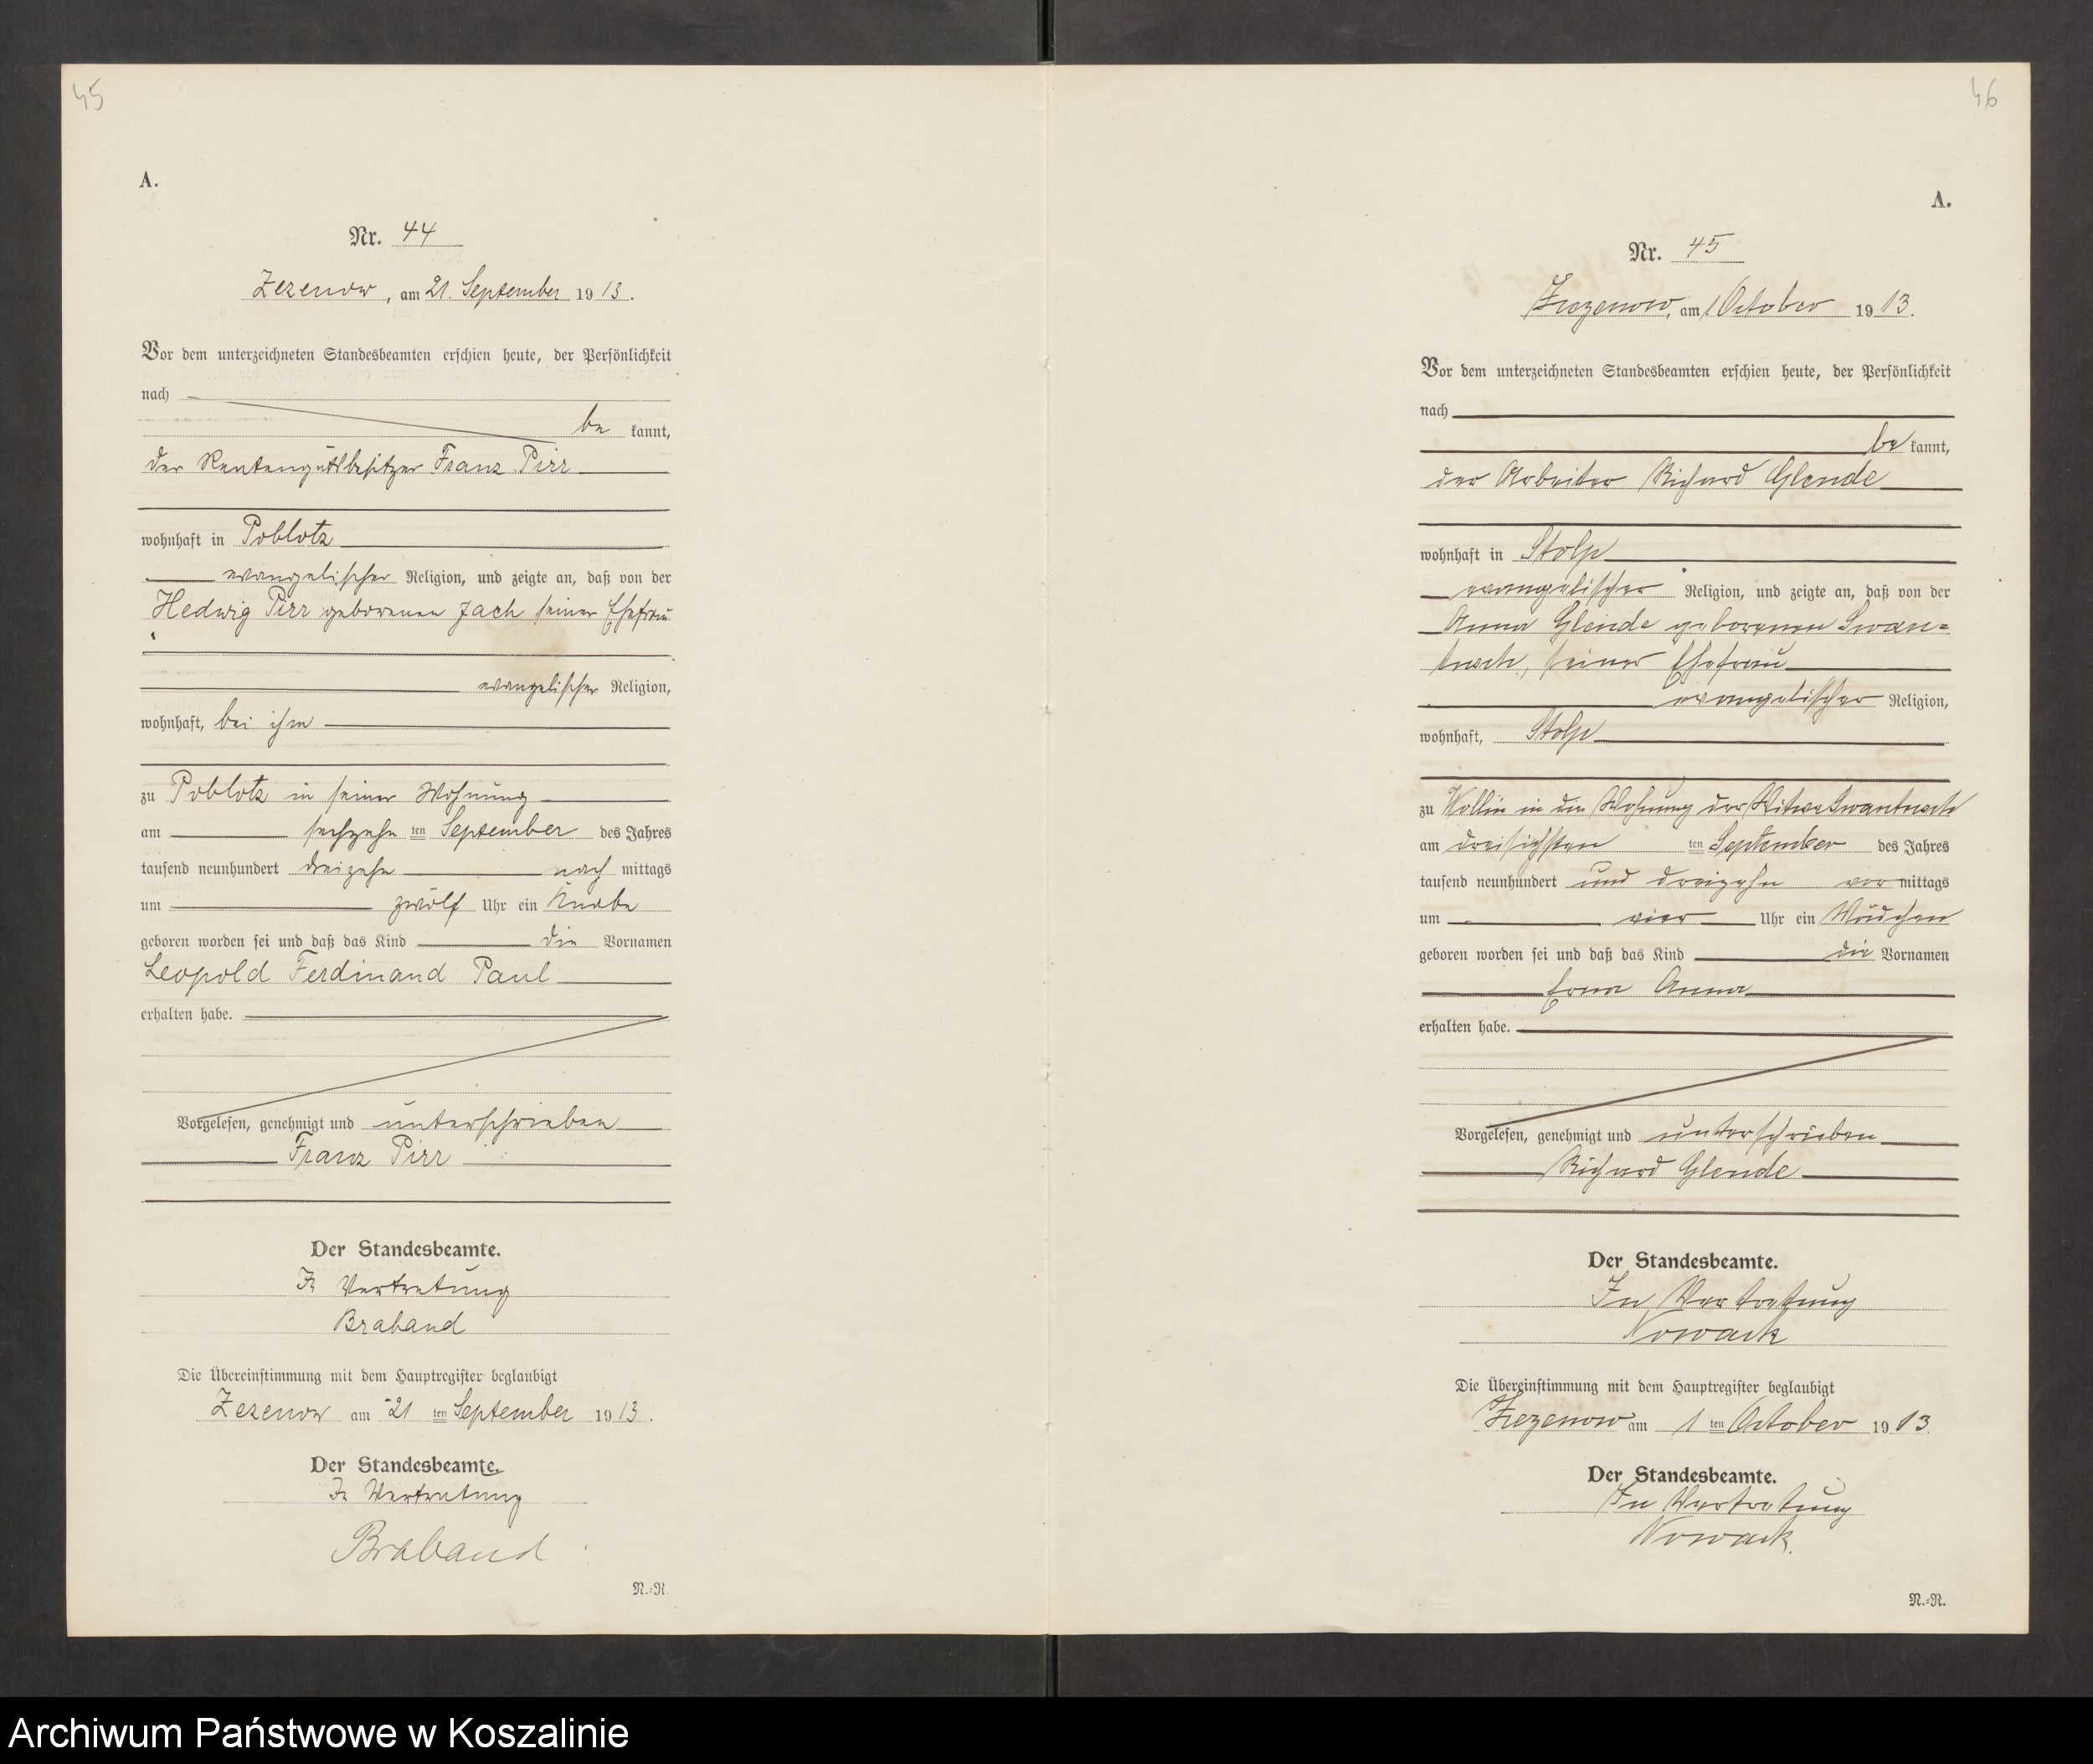 45
A.
Nr. 44
Zezenow, am 21. September 1913.
Vor dem unterzeichneten Standesbeamten erschien heute, der Persönlichkeit
nach
be kannt,
der Rentengutsbesitzer Franz Pirr
wohnhaft in Poblotz
evangelischer Religion, und zeigte an, daß von der
Hedwig Pirr geborenen Jach seiner Ehefrau
evangelischer Religion,
wohnhaft, bei ihm
zu Poblotz in seiner Wohnung
am sechzehn ten September des Jahres
tausend neunhundert dreizehn nach mittags
um zwölf Uhr ein Knabe
geboren worden sei und daß das Kind die Vornamen
Leopold Ferdinand Paul
erhalten habe.
Vorgelesen, genehmigt und unterschrieben
Franz Pirr
Der Standesbeamte.
In Vertretung
Braband
Die Übereinstimmung mit dem Hauptregister beglaubigt
Zezenow am 21 ten September 1913.
Der Standesbeamte.
In Vertretung
Braband
N.=R.
46
A.
Nr. 45
Zezenow, am 1 October 1913.
Vor dem unterzeichneten Standesbeamten erschien heute, der Persönlichkeit
nach
be kannt,
der Arbeiter Richard Glende
wohnhaft in Stolp
evangelischer Religion, und zeigte an, daß von der
Anna Glende geborenen Swan=
tusch, seiner Ehefrau
evangelischer Religion,
wohnhaft, Stolp
zu Wollin in die Wohnung der Witwe Swantusch
am dreisichsten ten September des Jahres
tausend neunhundert und dreizehn vor mittags
um vier Uhr ein Mädchen
geboren worden sei und daß das Kind die Vornamen
Erna Anna
erhalten habe.
Vorgelesen, genehmigt und unterschrieben
Richard Glende
Der Standesbeamte.
In Vertretung
Nowack
Die Übereinstimmung mit dem Hauptregister beglaubigt
Zezenow am 1 ten October 1913.
Der Standesbeamte.
In Vertretung
Nowack.
N.=R.
Archiwum Państwowe w Koszalinie